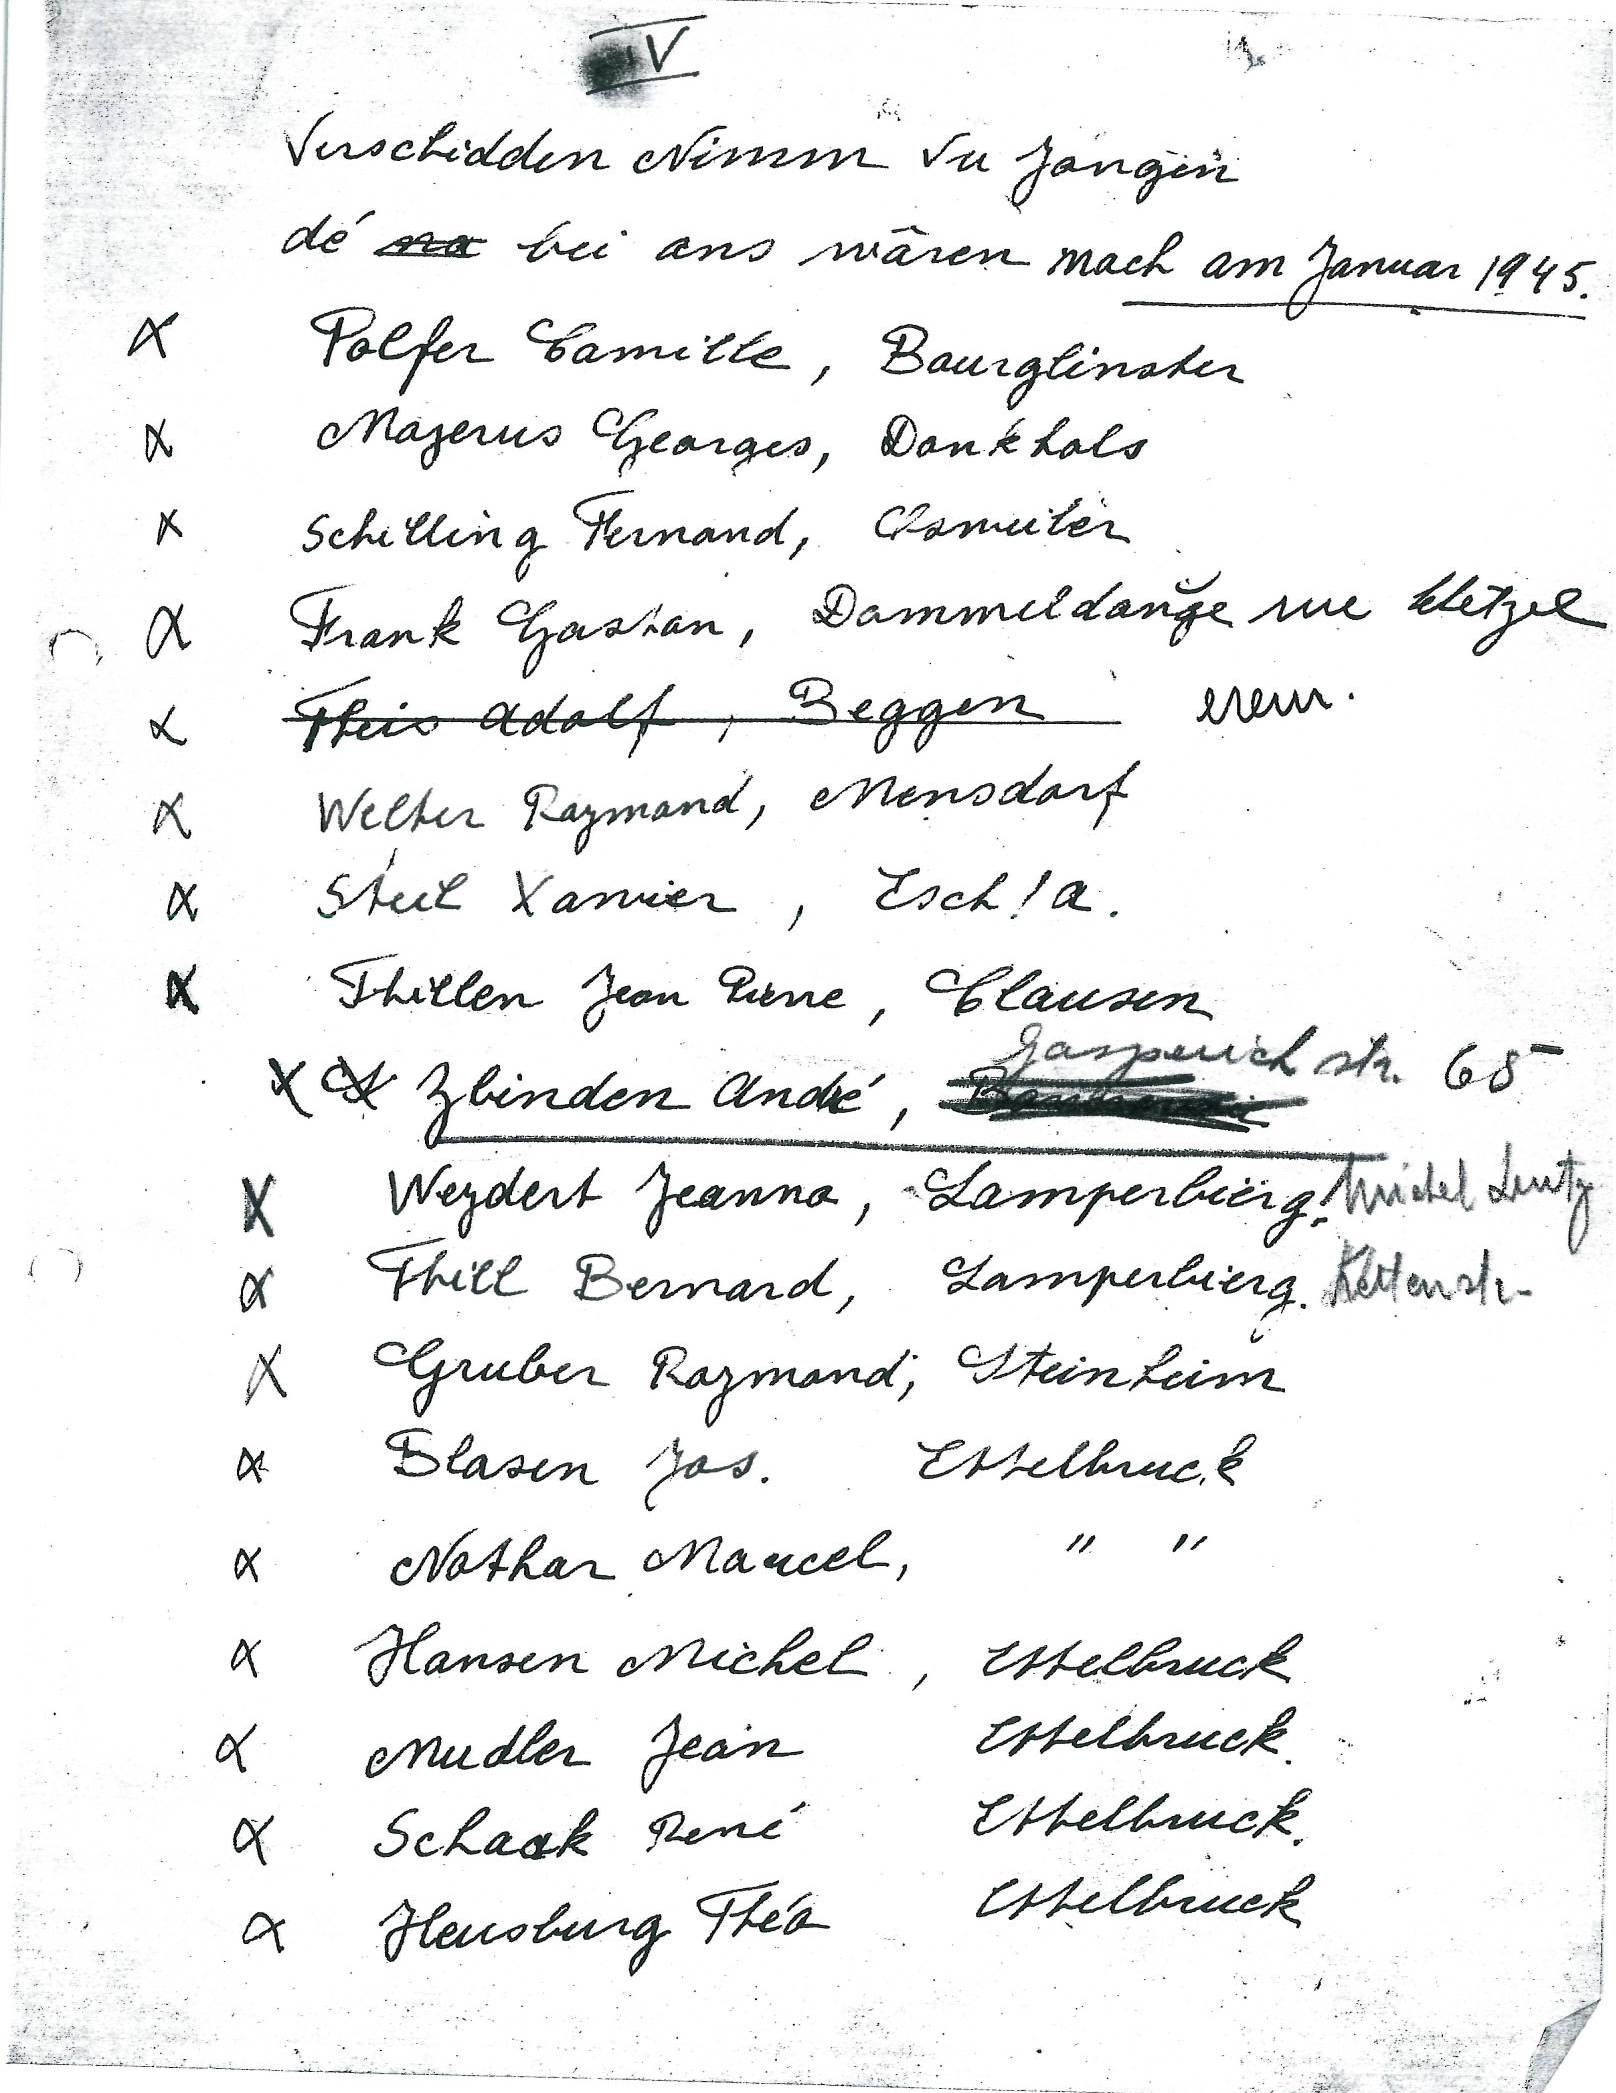 IV
Verschidden Nimm vu Jongen
dé bei ons wären noch am Januar 1945.
X Polfer Camille, Bourglinster
X Majerus Georges, Donkhols
X Schilling Fernand, Osweiler
X Frank Gaston, Dommeldange rue Hetzel
X Theis Adolf, Beggen
X Welter Raymond, Mensdorf
X Steil Xavier, Esch/a.
X Thillen Jean Pierre, Clausen
Gasperich str. 65
X X Zbinden André,
X Weydert Jeanno, Lamperbierg, Michel Lentz
X Thill Bernard, Lamperbierg. Kettenstr.
X Gruber Raymond, Steinheim
X Blasen Jos. Ettelbruck
X Nothar Marcel, " "
X Hansen Michel, Ettelbruck
X Mudler Jean Ettelbruck.
X Schaak René Ettelbruck.
X Heusburg Théo Ettelbruck